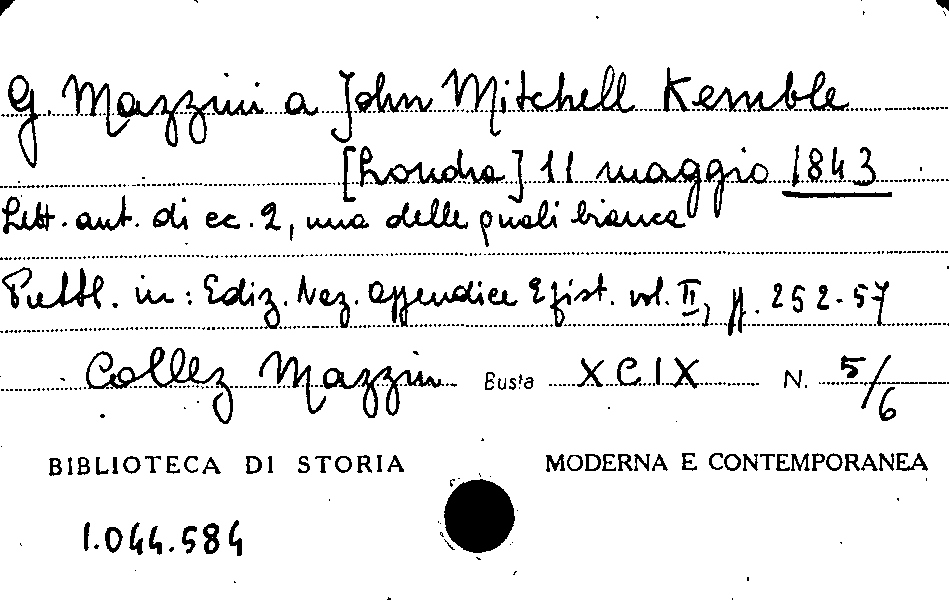 G. Mazzini a John Mitchell Kemble
[Londra] 11 maggio 1843
Lett. aut. di cc. 2, una delle quali bianca
Pubbl. in: Ediz. Naz. Appendice Epist. vol. II, pp. 252-57
Collez Mazzini Busta XCIX N. 5/6
BIBLIOTECA DI STORIA MODERNA E CONTEMPORANEA
1.044.584